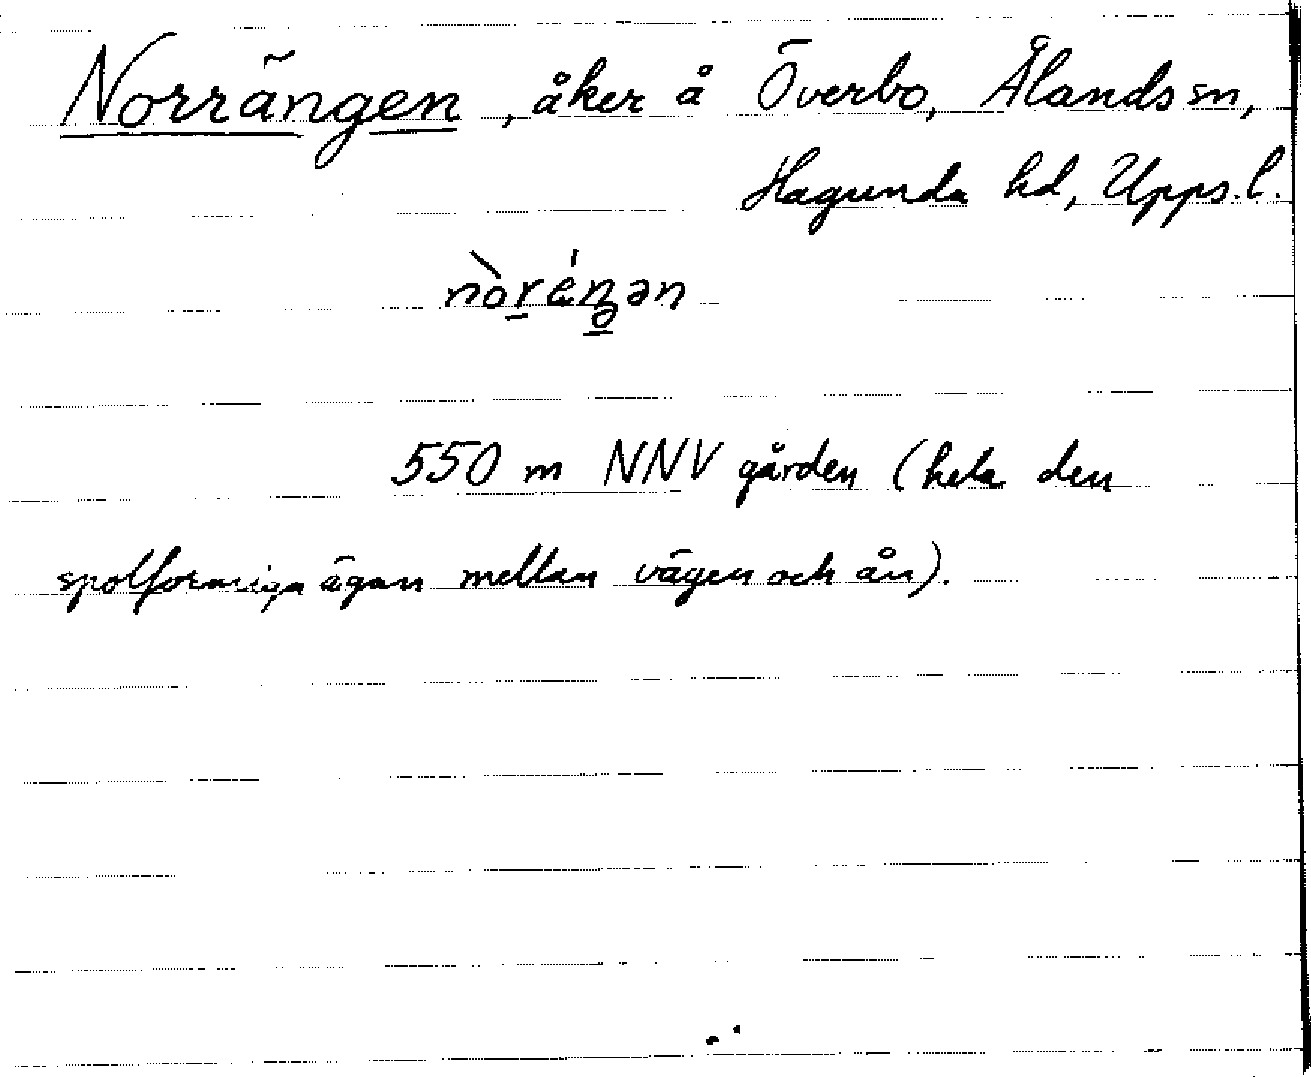 Norrängen, åker å Överbo, Ålands sn,
Hagunda hd, Upps. l.
nòrέŋən
550 m NNV gården (hela den
spolformiga ägan mellan vägen och ån).